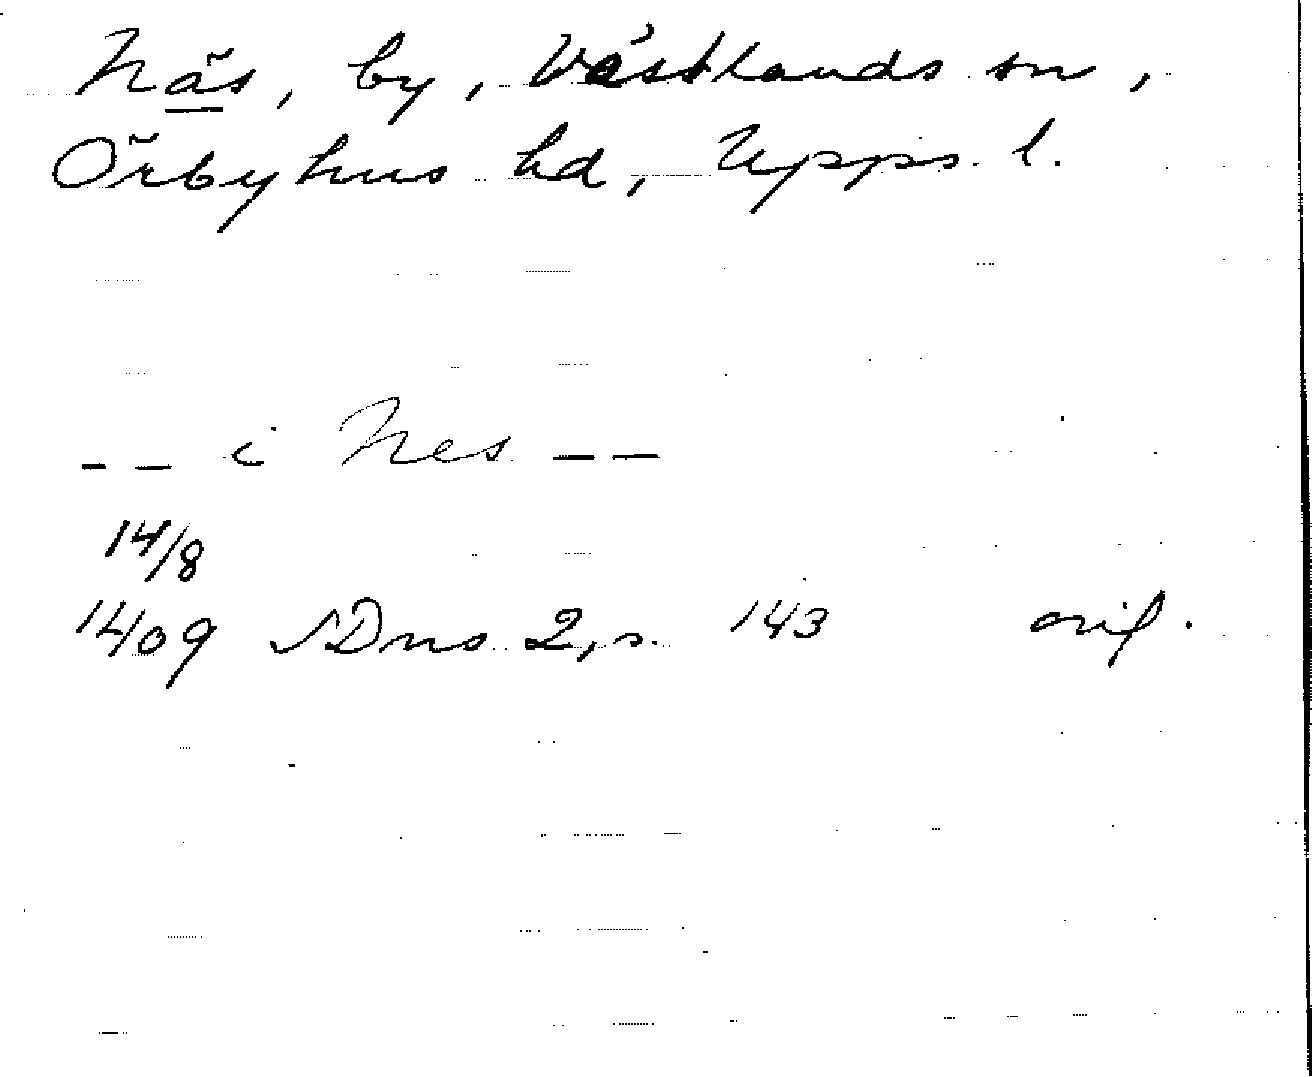 Näs, by, Västlands sn,
Örbyhus hd, Upps. l.
-- i Nes --
14/8
1409 SDns 2, s. 143 orig.